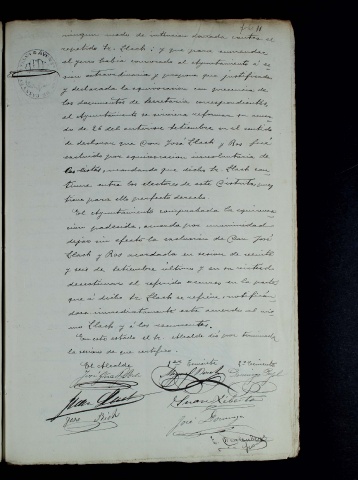 ningun modo de intencion dañada contra el
repetido Sr. Llach; y que para enmendar
el yerro habia convocado al Ayuntamiento á se-
sion extraordinaria y propone que justificada
y declarada la equivocacion con presencia de
los documentos de Secretaria correspondientes
el Ayuntamiento se sirviera reformar su acuer-
do de 26 del anterior Setiembre en el sentido
de declarar que Don José Llach y Ros fué
excluido por equivocacion involuntaria de
las listas, mandando que dicho Sr. Llach con-
tinue entre los electores de este Distrito, pues
tiene para ello perfecto derecho.
El Ayuntamiento comprobada la equivoca-
cion padecida, acuerda por unanimidad
dejar sin efecto la exclusion de Don José
Llach y Ros acordada en sesion de veinte
y seis de Setiembre último y en su virtud
el referido acuerdo en la parte
que á dicho Sr. Llach se refiere,
dose inmediatamente este acuerdo al mis-
mo Llach y á los recurrentes.
En este estado el Sr. Alcalde dió por terminada
la sesion de que certifico.
El Alcalde
José
Juan
José Bich
José